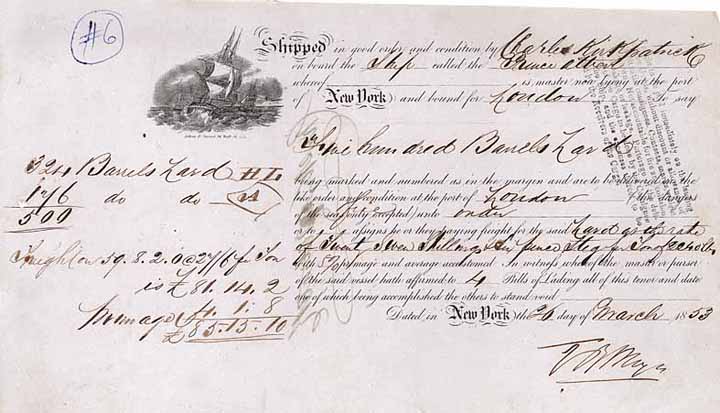 #6
Shipped in good order and condition by Charles Kirkpatrick
on board the Ship called the Prince Albert
whereof is master now lying at the port
of New York and bound for London To say
Five hundred Barrels Lard
being marked and numbered as in the margin and are to be delivered in the
like order and condition at the port of London (the dangers
of the sea only excepted) unto order
or to assigns he or they paying freight for the said Lard at the rate
of Twenty Seven Shillings Six pence Stg pr Ton of 2240 lbs
with 5% primage and average accustomed. In witness whereof the master or purser
of the said vessel hath affirmed to 4 Bills of Lading all of this tenor and date
one of which being accomplished the others to stand void
Dated in New York the 26 day of March 1853
324 Barrels Lard HL
176 do do A
500
Freight on 59.8.2.0 @ 27/6 pr Ton
is £81.14.2
primage 4.1.8
£85.15.10